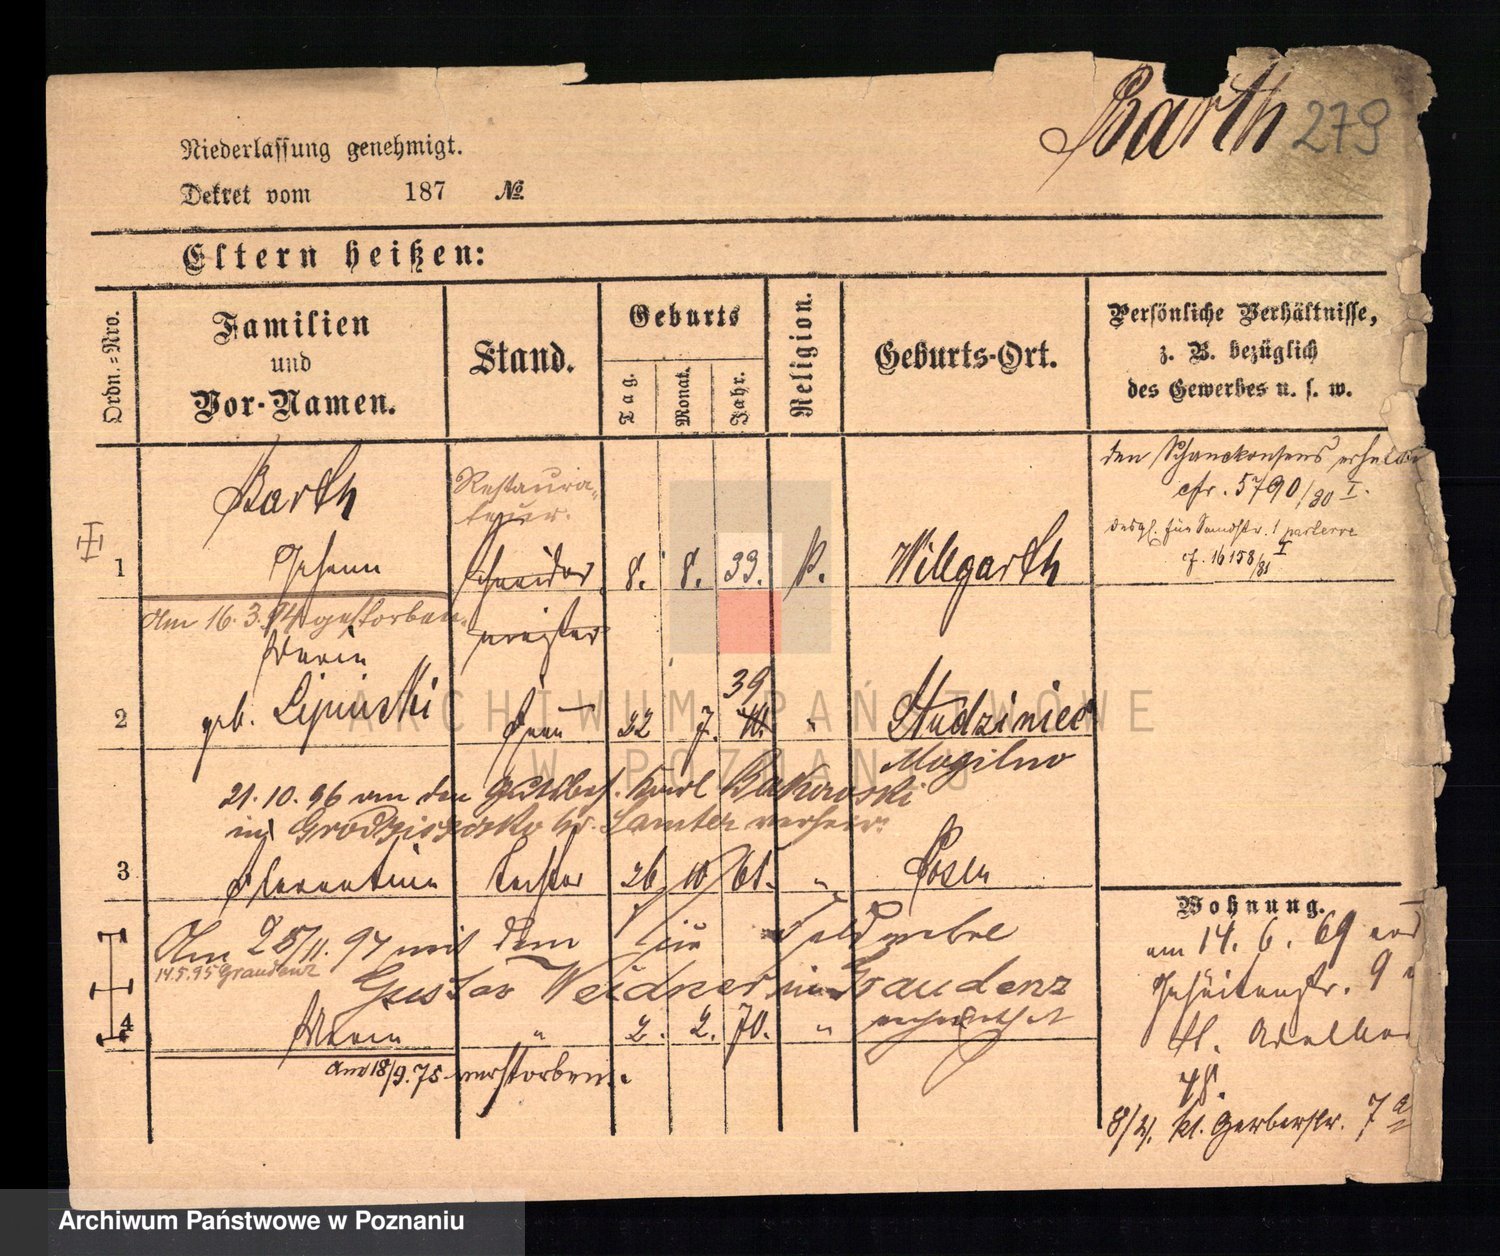 Barth 279
Niederlassung genehmigt.
Dekret vom 187 No.
Eltern heißen:
Ordn.-Nro.
Familien
und
Vor-Namen.
Stand.
Geburts
Tag.
Monat.
Jahr.
Religion.
Geburts-Ort.
Persönliche Verhältnisse,
z. B. bezüglich
des Gewerbes u. s. w.
den Schankonsens
cfr. 5790/80 I.
desgl. für Sandstr. 1 parterre
cf. 16158/81 I
Barth
Restaura-
teur.
1 Johann Schneider 8. 8. 33. k. Willgarth
meister
Am 16.3.94 gestorben.
Maria
39
2 geb. Lipinski Frau 22 7. "
Studziniec
Mogilno
21.10.96 an den Gutsbes. Karl Bakowski
in Grodziszczko Kr. Samter verheir.
3 Florentine Tochter 26 10 61. " Posen
Am 25/11. 97 mit dem Feldwebel
14.5.95 Graudenz
Gustav Weidner in Graudenz
4 Maria " 2. 2. 70. "
Am 18/9. 75 verstorben.
Wohnung.
am 14. 6. 69
Jesuitenstr. 9
St. Adelber
48.
8/4. kl. Gerberstr. 7 a
ARCHIWUM PAŃSTWOWE
W POZNANIU
Archiwum Państwowe w Poznaniu